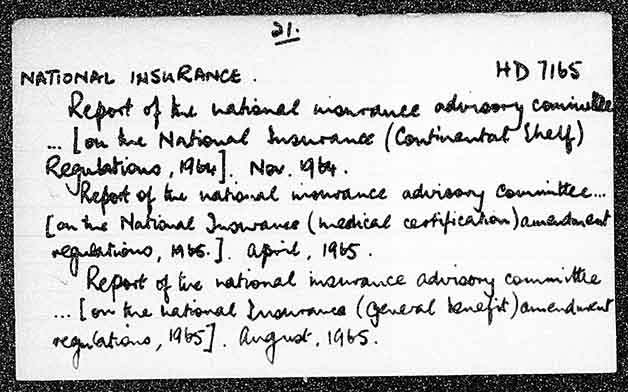 21.
NATIONAL INSURANCE. HD 7165
Report of the national insurance advisory committee
... [on the National Insurance (Continental Shelf)
Regulations, 1964]. Nov. 1964.
Report of the national insurance advisory committee...
[on the National Insurance (medical certification) amendment
regulations, 1965.]. April, 1965.
Report of the national insurance advisory committee
... [on the national Insurance (general benefit) amendment
regulations, 1965]. August, 1965.